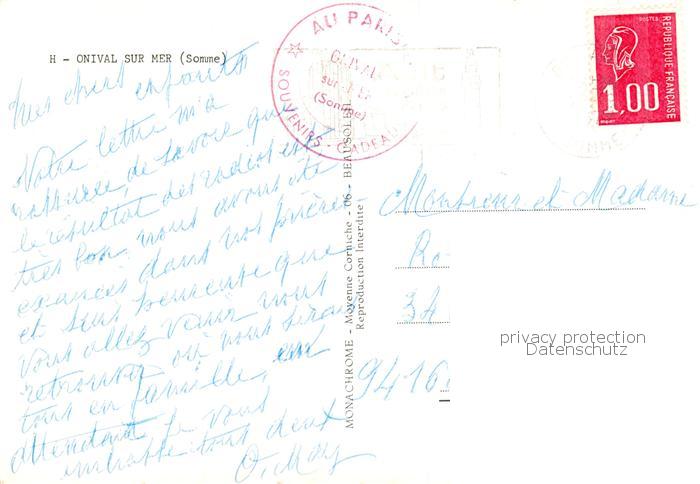 H - ONIVAL SUR MER (Somme)
AU PARIS
ONIVAL
sur
(Somme)
SOUVENIRS - CADEAU
POSTES
REPUBLIQUE FRANÇAISE
1,00
mes chers enfants
Votre lettre m'a
de savoir que
le résultat des radios est
très bon nous avons été
exaucés dans nos prières
et suis heureuse que
vous allez venir nous
retrouver où nous serons
tous en famille, en
attendant je vous
embrasse tous deux
MONACHROME - Moyenne Corniche - 06 - BEAUSOLEIL
Reproduction Interdite
Monsieur et Madame
Ro
34
9416
privacy protection
Datenschutz